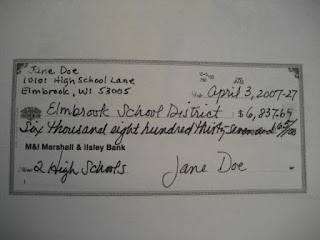 Jane Doe
10101 High School Lane
Elmbrook, WI 53005
Date April 3, 2007-27
Elmbrook School District $ 6,837.69
Six thousand eight hundred thirty seven and 65/100
M&I Marshall & Ilsley Bank
2 High Schools Jane Doe